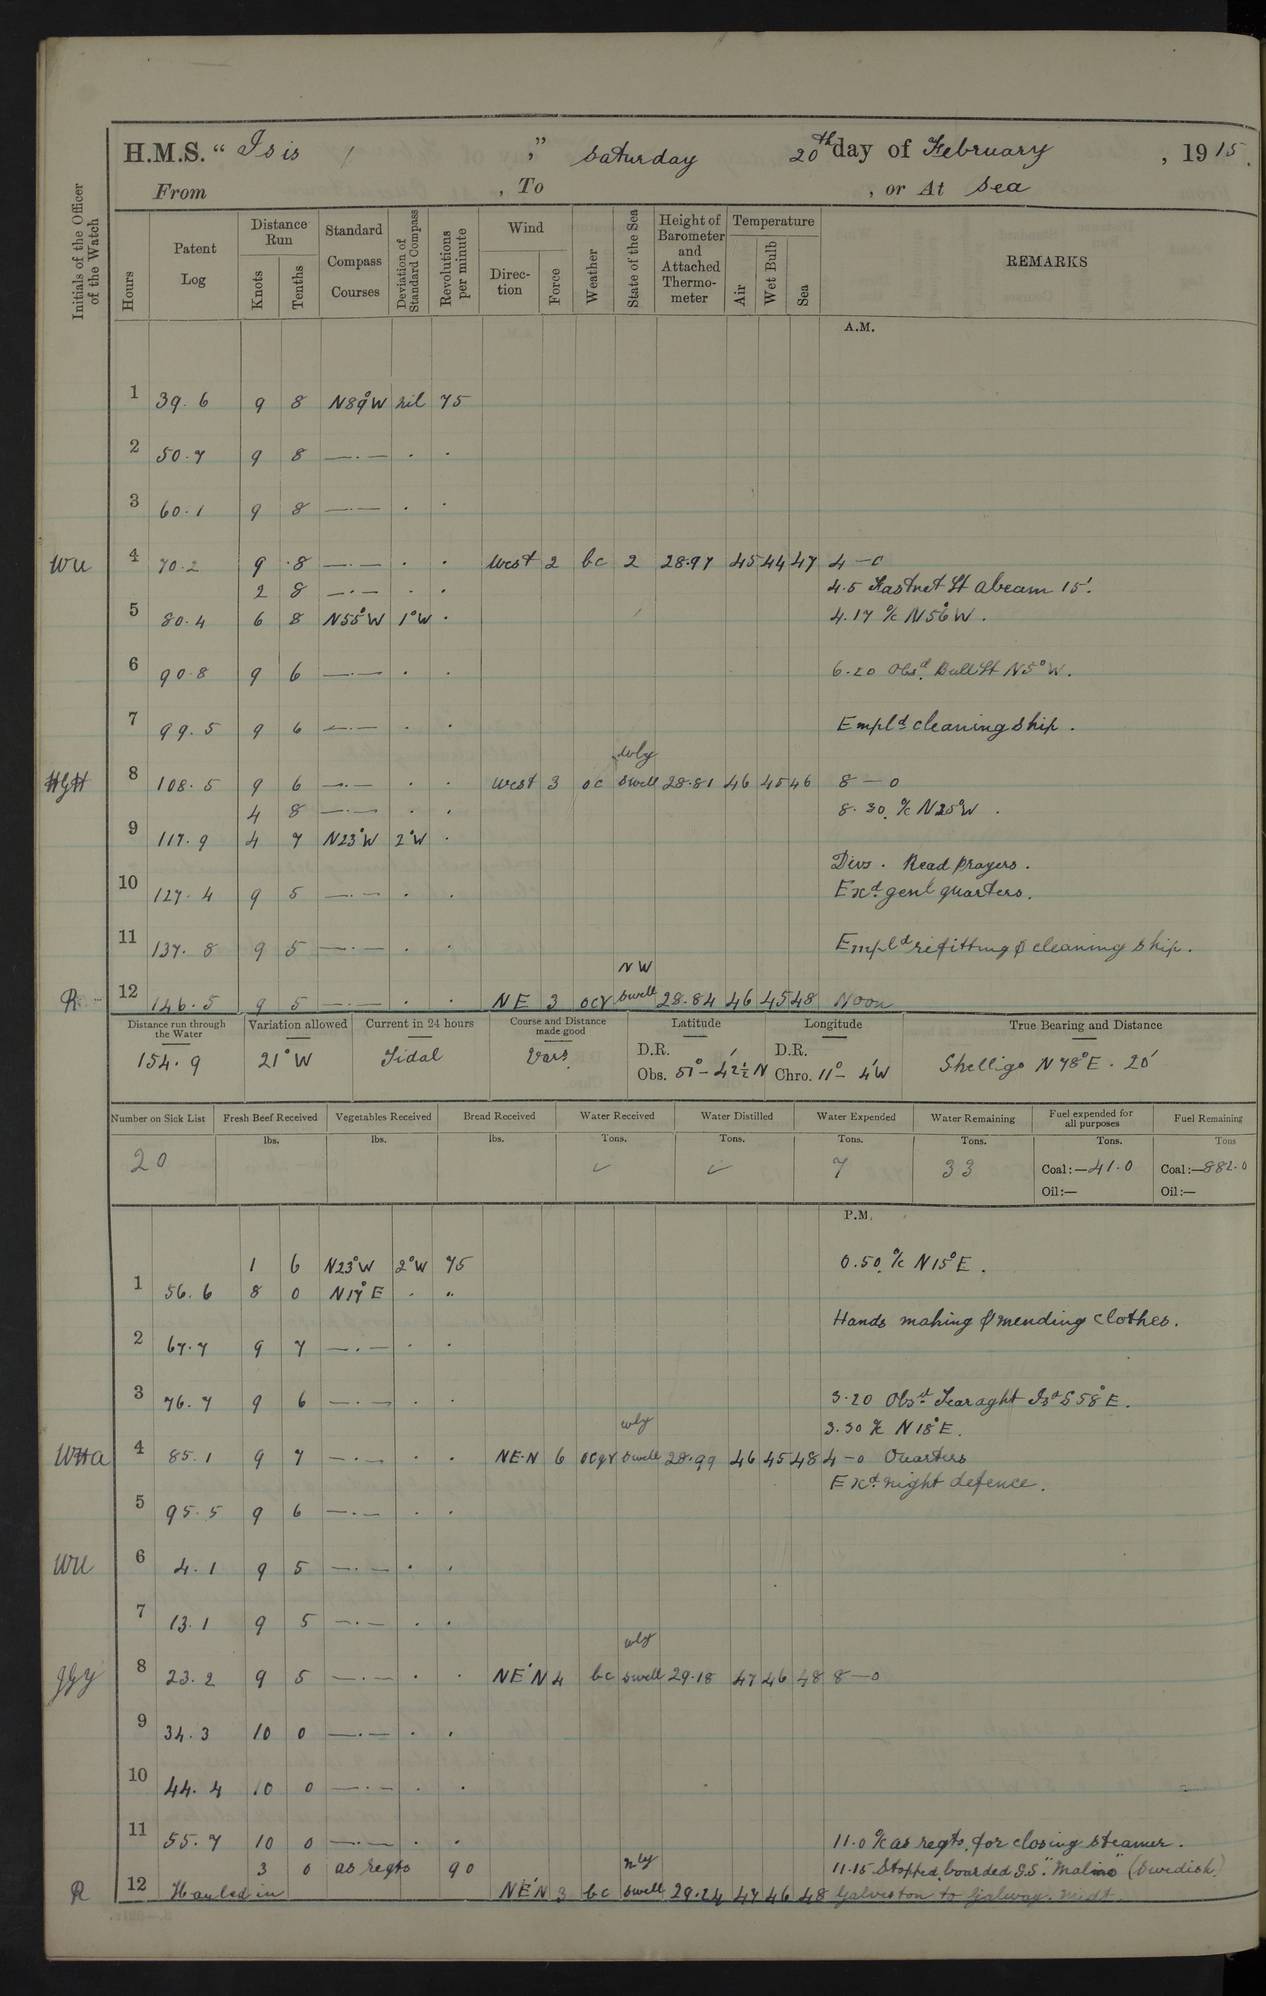 H.M.S. “ Isis ,” Saturday 20th day of February , 1915.
From , To , or At Sea
Initials of the Officer of the Watch
Hours
Patent Log
Distance Run
Knots
Tenths
Standard Compass Courses
Deviation of Standard Compass
Revolutions per minute
Wind
Direction
Force
Weather
State of the Sea
Height of Barometer and Attached Thermometer
Temperature
Air
Wet Bulb
Sea
REMARKS
A.M.
1 39.6 9 8 N89°W nil 75
2 50.7 9 8 —.— . .
3 60.1 9 8 —.— . .
4 70.2 9 .8 —.— . . West 2 bc 2 28.97 45 44 47 4 — 0
2 8 —.— . . 4.5 Fastnet Lt abeam 15'.
5 80.4 6 8 N55°W 1°W . 4.17 %c N56°W.
6 90.8 9 6 —.— . . 6.20 Obsd. Bull Lt N5°W.
7 99.5 9 6 —.— . . Empld cleaning ship.
wly
HGH 8 108.5 9 6 —.— . . West 3 oc swell 28.81 46 45 46 8 — 0
4 8 —.— . . 8.30. %c N25°W.
9 117.9 4 7 N23°W 2°W .
Divs. Read prayers.
10 127.4 9 5 —.— . . Exd. genl quarters.
11 137.8 9 5 —.— . . Empld refitting & cleaning ship.
NW
R 12 146.5 9 5 —.— . . NE 3 ocr swell 28.84 46 45 48 Noon
Distance run through the Water Variation allowed Current in 24 hours Course and Distance made good Latitude Longitude True Bearing and Distance
D.R. D.R.
154.9 21°W Tidal Vars. Obs. 51°– 42½'N Chro. 11°– 4'W Skelligs N78°E. 20'
Number on Sick List Fresh Beef Received Vegetables Received Bread Received Water Received Water Distilled Water Expended Water Remaining Fuel expended for all purposes Fuel Remaining
lbs. lbs. lbs. Tons. Tons. Tons. Tons. Tons. Tons
20 ✓ ✓ 7 33 Coal:—41.0 Coal:—882.0
Oil:— Oil:—
P.M.
1 6 N23°W 2°W 75 0.50. %c N15°E.
1 56.6 8 0 N17°E . "
Hands making & mending clothes.
2 67.7 9 7 —.— . .
3 76.7 9 6 —.— . . 3.20 Obsd. Tearaght Isd S58°E.
wly 3.30 %c N18°E.
WHA 4 85.1 9 7 —.— . . NE.N 6 ocqr swell 28.99 46 45 48 4 – 0 Quarters
Exd. night defence.
5 95.5 9 6 —.— . .
6 4.1 9 5 —.— . .
7 13.1 9 5 —.— . .
wly
8 23.2 9 5 —.— . . NE'N 4 bc swell 29.18 47 46 48 8 — 0
9 34.3 10 0 —.— . .
10 44.4 10 0 —.— . .
11 55.7 10 0 —.— . . 11.0 %c as reqts. for closing steamer.
3 0 as reqts 90 nly 11.15 Stopped, boarded S.S. " " (Swedish)
R 12 Hauled in NE'N 3 bc swell 29.24 47 46 48 Galveston to Galway. Midt.